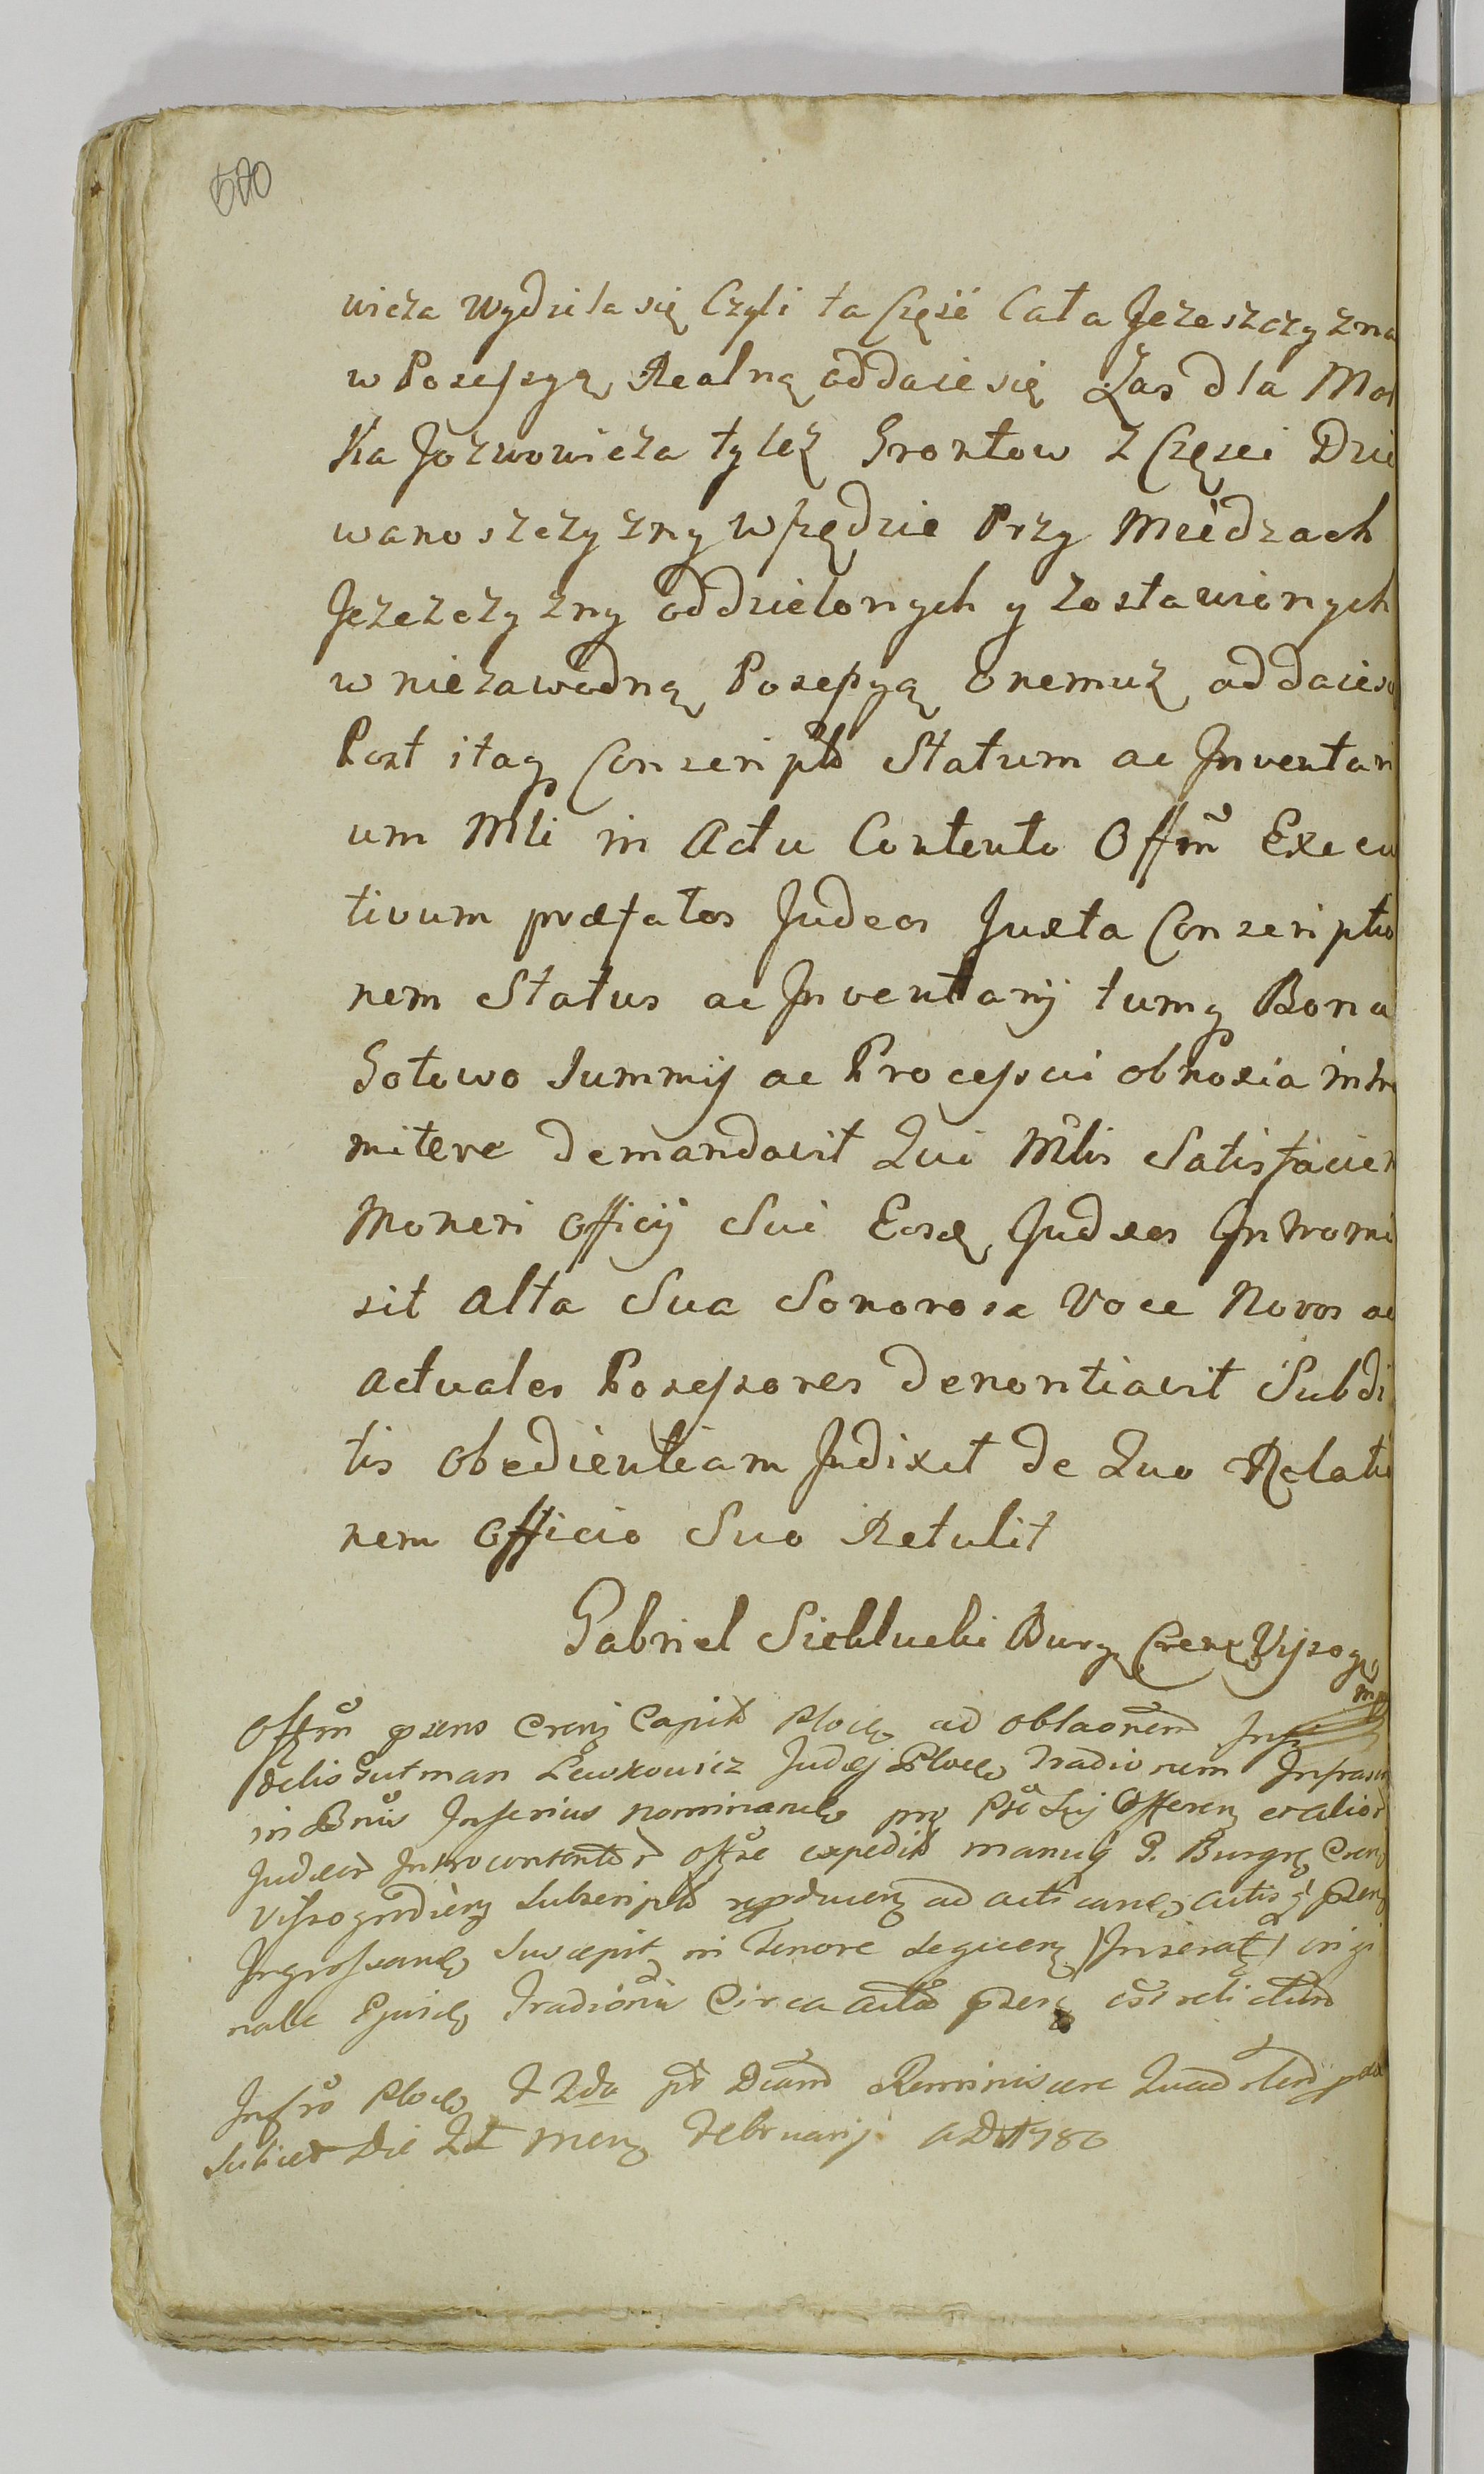 500
wicza Wydziela się Czyli ta Część Cała Jezeszczyzna
w Possessyą Realną oddaie się Zas dla Mos
ka Jozwowicza tyleż Grontow z Części Dzie
wanoszczyzny wszędzie Przy Meidzach
Jezezczyzny oddzielonych y zostawionych
w niezawodną Possessyą onemuż oddaiesię
Post itaq Conscriptō Statum ac Inventari
um Mlī in Actu Contento Offm̄ Execu
tivum præfatos Judeos Juxta Conscriptio
nem Status ac Inventarij tumq Bona
Gotowo Summy ac Processui obnoxia intro
mitere demandavit Qui Mlis Satisfacien
Moneri Officij Sui Eosd Judæos Intromi
sit Alta Sua Sonorosa Voce Novos ac
Actuales Possessores Denontiavit Subdi
tis obedientiam Indixit de Quo Relatio
nem Officio Suo Retulit
Gabriel Sichlucki Burg Crens Vissog
mp
Offm̄ psens Crens Capit Ploc ad oblaonem Infi
delis Gutman Lewkowicz Judej Ploc Tradionem Infra
in Bnis Inferius nominand pro Offeren et alior
Judeor Introcontentor Offse expedit manuq G. Burgr Crens
Vissogrodien Subscript reproducen ad acti cand actisq psen
Ingrossand Suscepit in Tenore Sequen Inserat origi
nale Ejusd Tradionis Circa acta psen est relictum
Ploc F 2da pt Dicam Reminiscere Quad
Die 21 Mens Februarij AD 1780